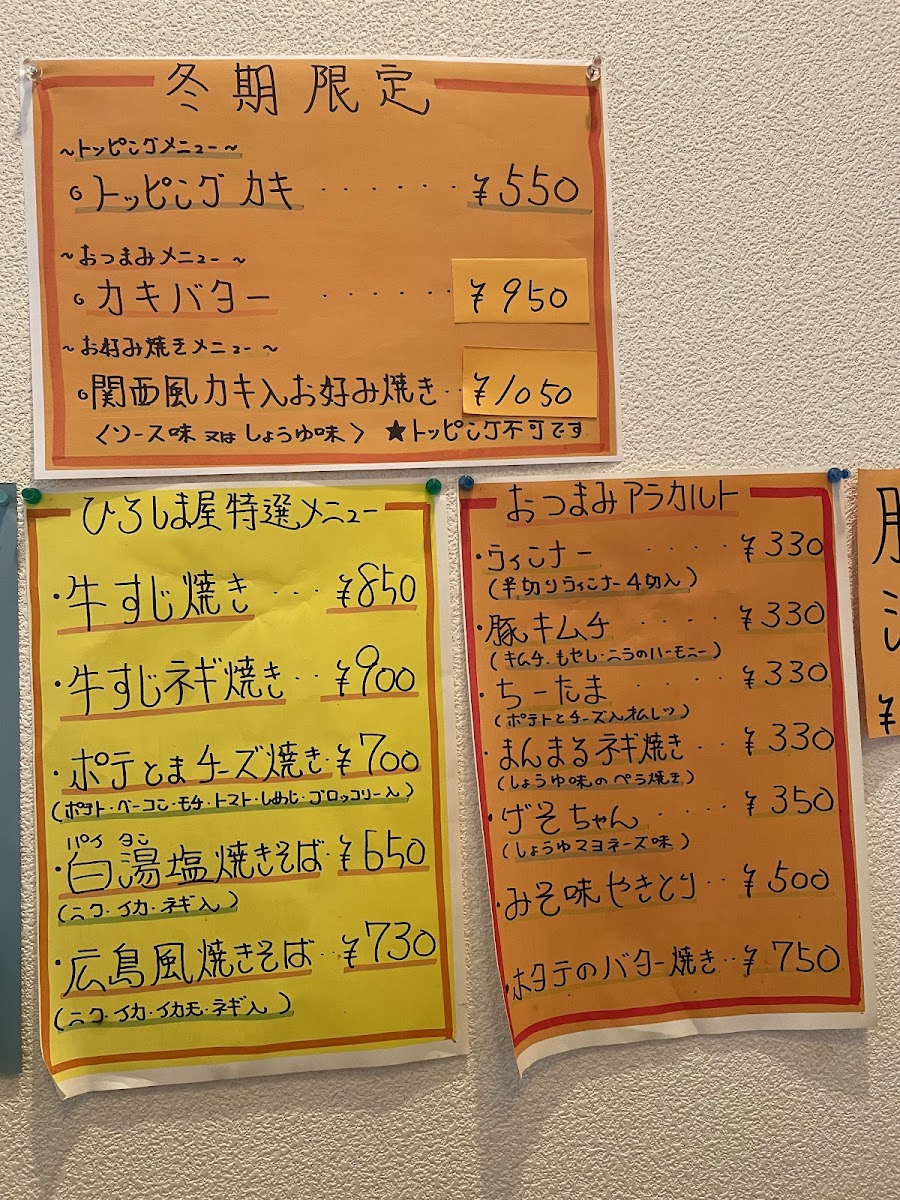 冬期限定
~トッピングメニュー~
◦トッピング カキ ······ ¥550
~おつまみメニュー~
◦カキバター ······ ¥950
~お好み焼きメニュー~
◦関西風カキ入お好み焼き·· ¥1050
〈ソース味 又は しょうゆ味〉 ★トッピング不可です
ひろしま屋特選メニュー
・牛すじ焼き ··· ¥850
・牛すじネギ焼き ·· ¥900
・ポテとまチーズ焼き· ¥700
(ポテト・ベーコン・モチ・トマト・しめじ・ブロッコリー入)
パイ タン
・白湯塩焼きそば· ¥650
(ニク・イカ・ネギ入)
・広島風焼きそば·· ¥730
(ニク・イカ・イカモ・ネギ入)
おつまみアラカルト
・ウィンナー ···· ¥330
(半切りウィンナー4切入)
・豚キムチ ···· ¥330
(キムチ・もやし・ニラのハーモニー)
・ちーたま ···· ¥330
(ポテトとチーズ入オムレツ)
・まんまるネギ焼き ··· ¥330
(しょうゆ味のペラ焼き)
・げそちゃん ···· ¥350
(しょうゆマヨネーズ味)
・みそ味やきとり·· ¥500
・ホタテのバター焼き·· ¥750
¥